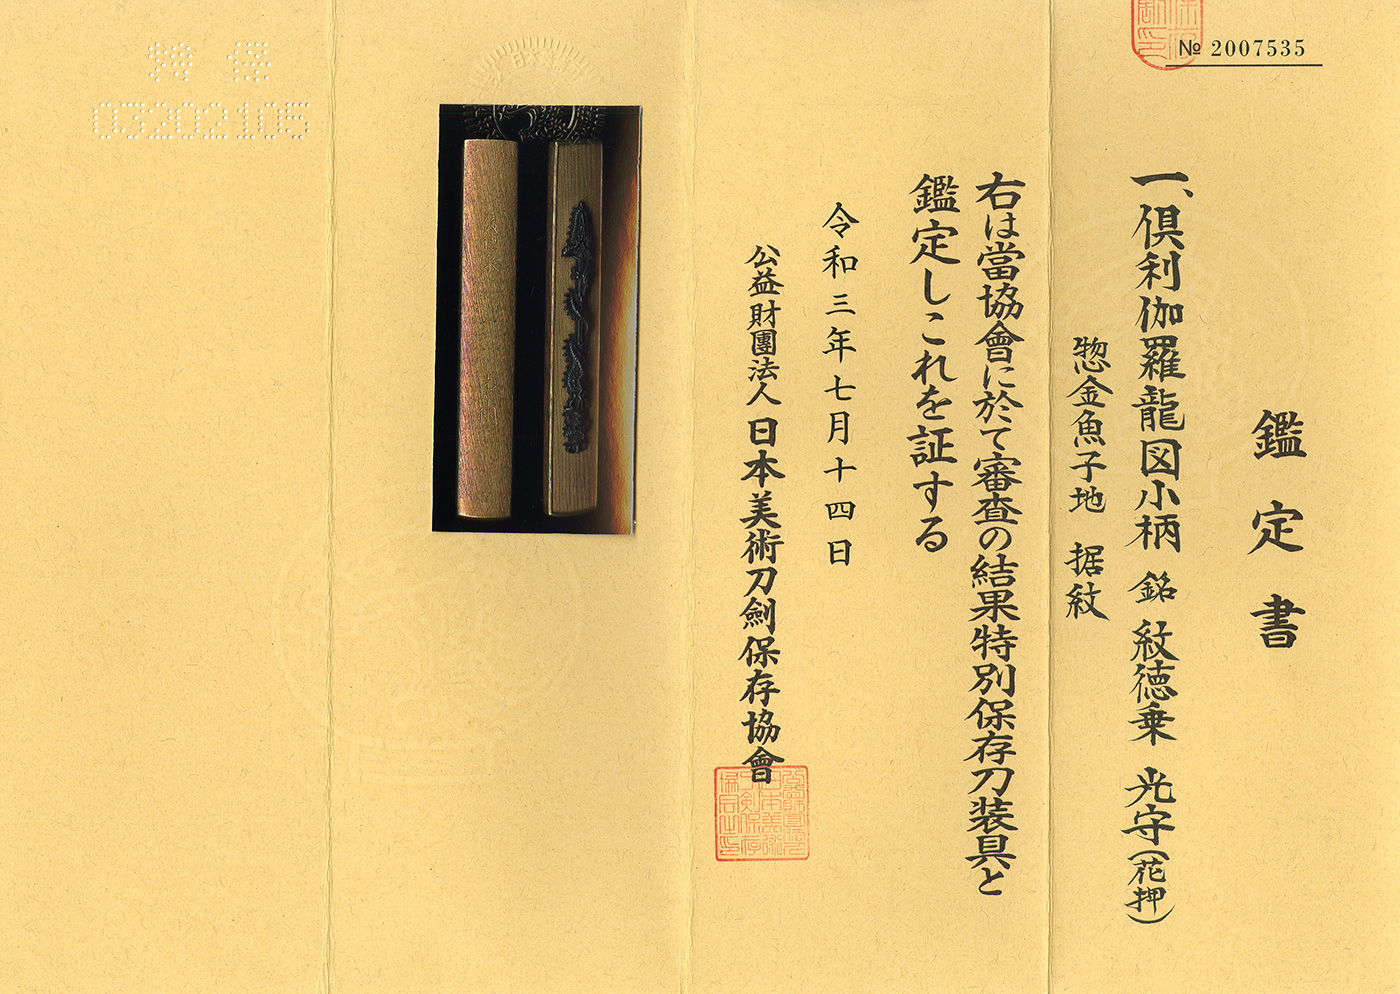 № 2007535
鑑定書
一、倶利伽羅龍図小柄 銘 紋徳乗 光守(花押)
惣金魚子地 据紋
右は當協會に於て審査の結果特別保存刀装具と
鑑定しこれを証する
令和三年七月十四日
公益財團法人 日本美術刀劍保存協會
特保
03202105